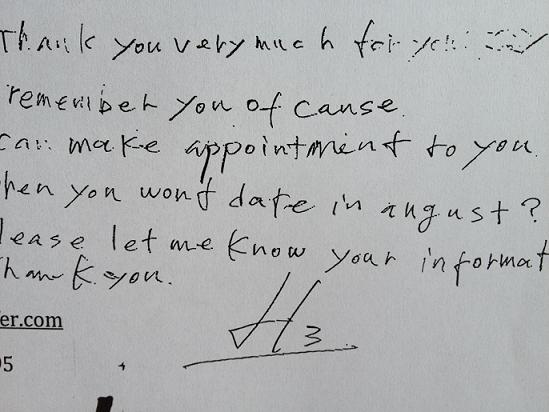 Thank you very much for
remember you of cause.
can make appointment to you.
hen you wont date in august?
lease let me know your informat
hank you.
er.com
5